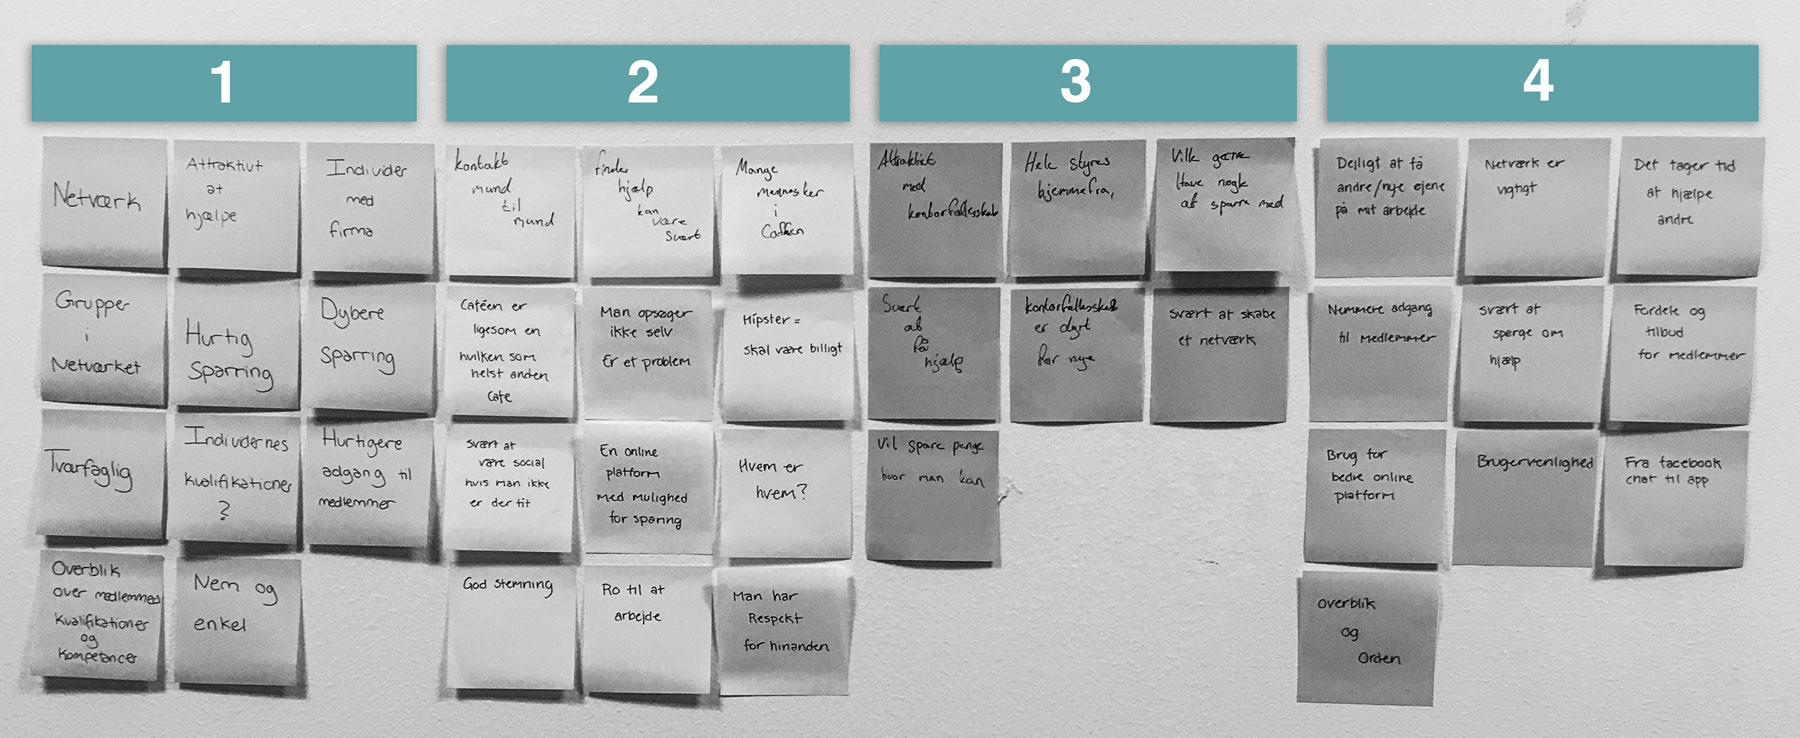 1
2
3
4
Netværk
Attraktivt
at
hjælpe
Individer
med
firma
Grupper
i
Netværket
Hurtig
Sparring
Dybere
Sparring
Tværfaglig
Individernes
kvalifikationer
?
Hurtigere
adgang til
medlemmer
Overblik
over medlemmers
kvalifikationer
og
kompetencer
Nem og
enkel
kontakt
mund
til
mund
finde
hjælp
kan
være
svært
Mange
mennesker
i
Caféen
Caféen er
ligesom en
hvilken som
helst anden
Cafe
Man opsøger
ikke selv
Er et problem
Hipster =
skal være billigt
svært at
være social
hvis man ikke
er der tit
En online
platform
med mulighed
for sparing
Hvem er
hvem?
God stemning
Ro til at
arbejde
Man har
Respekt
for hinanden
Attraktivt
med
kontorfællesskab
Hele styres
hjemmefra,
Ville gerne
have nogle
at sparre med
Svært
at
få
hjælp
kontorfællesskab
er dyrt
for nye
svært at skabe
et netværk
Vil spare penge
hvor man kan
Dejligt at få
andre/nye øjene
på mit arbejde
Netværk er
vigtigt
Det tager tid
at hjælpe
andre
Nemmere adgang
til medlemmer
svært at
spørge om
hjælp
Fordele og
tilbud
for medlemmer
Brug for
bedre online
platform
Brugervenlighed
Fra facebook
chat til app
Overblik
og
Orden